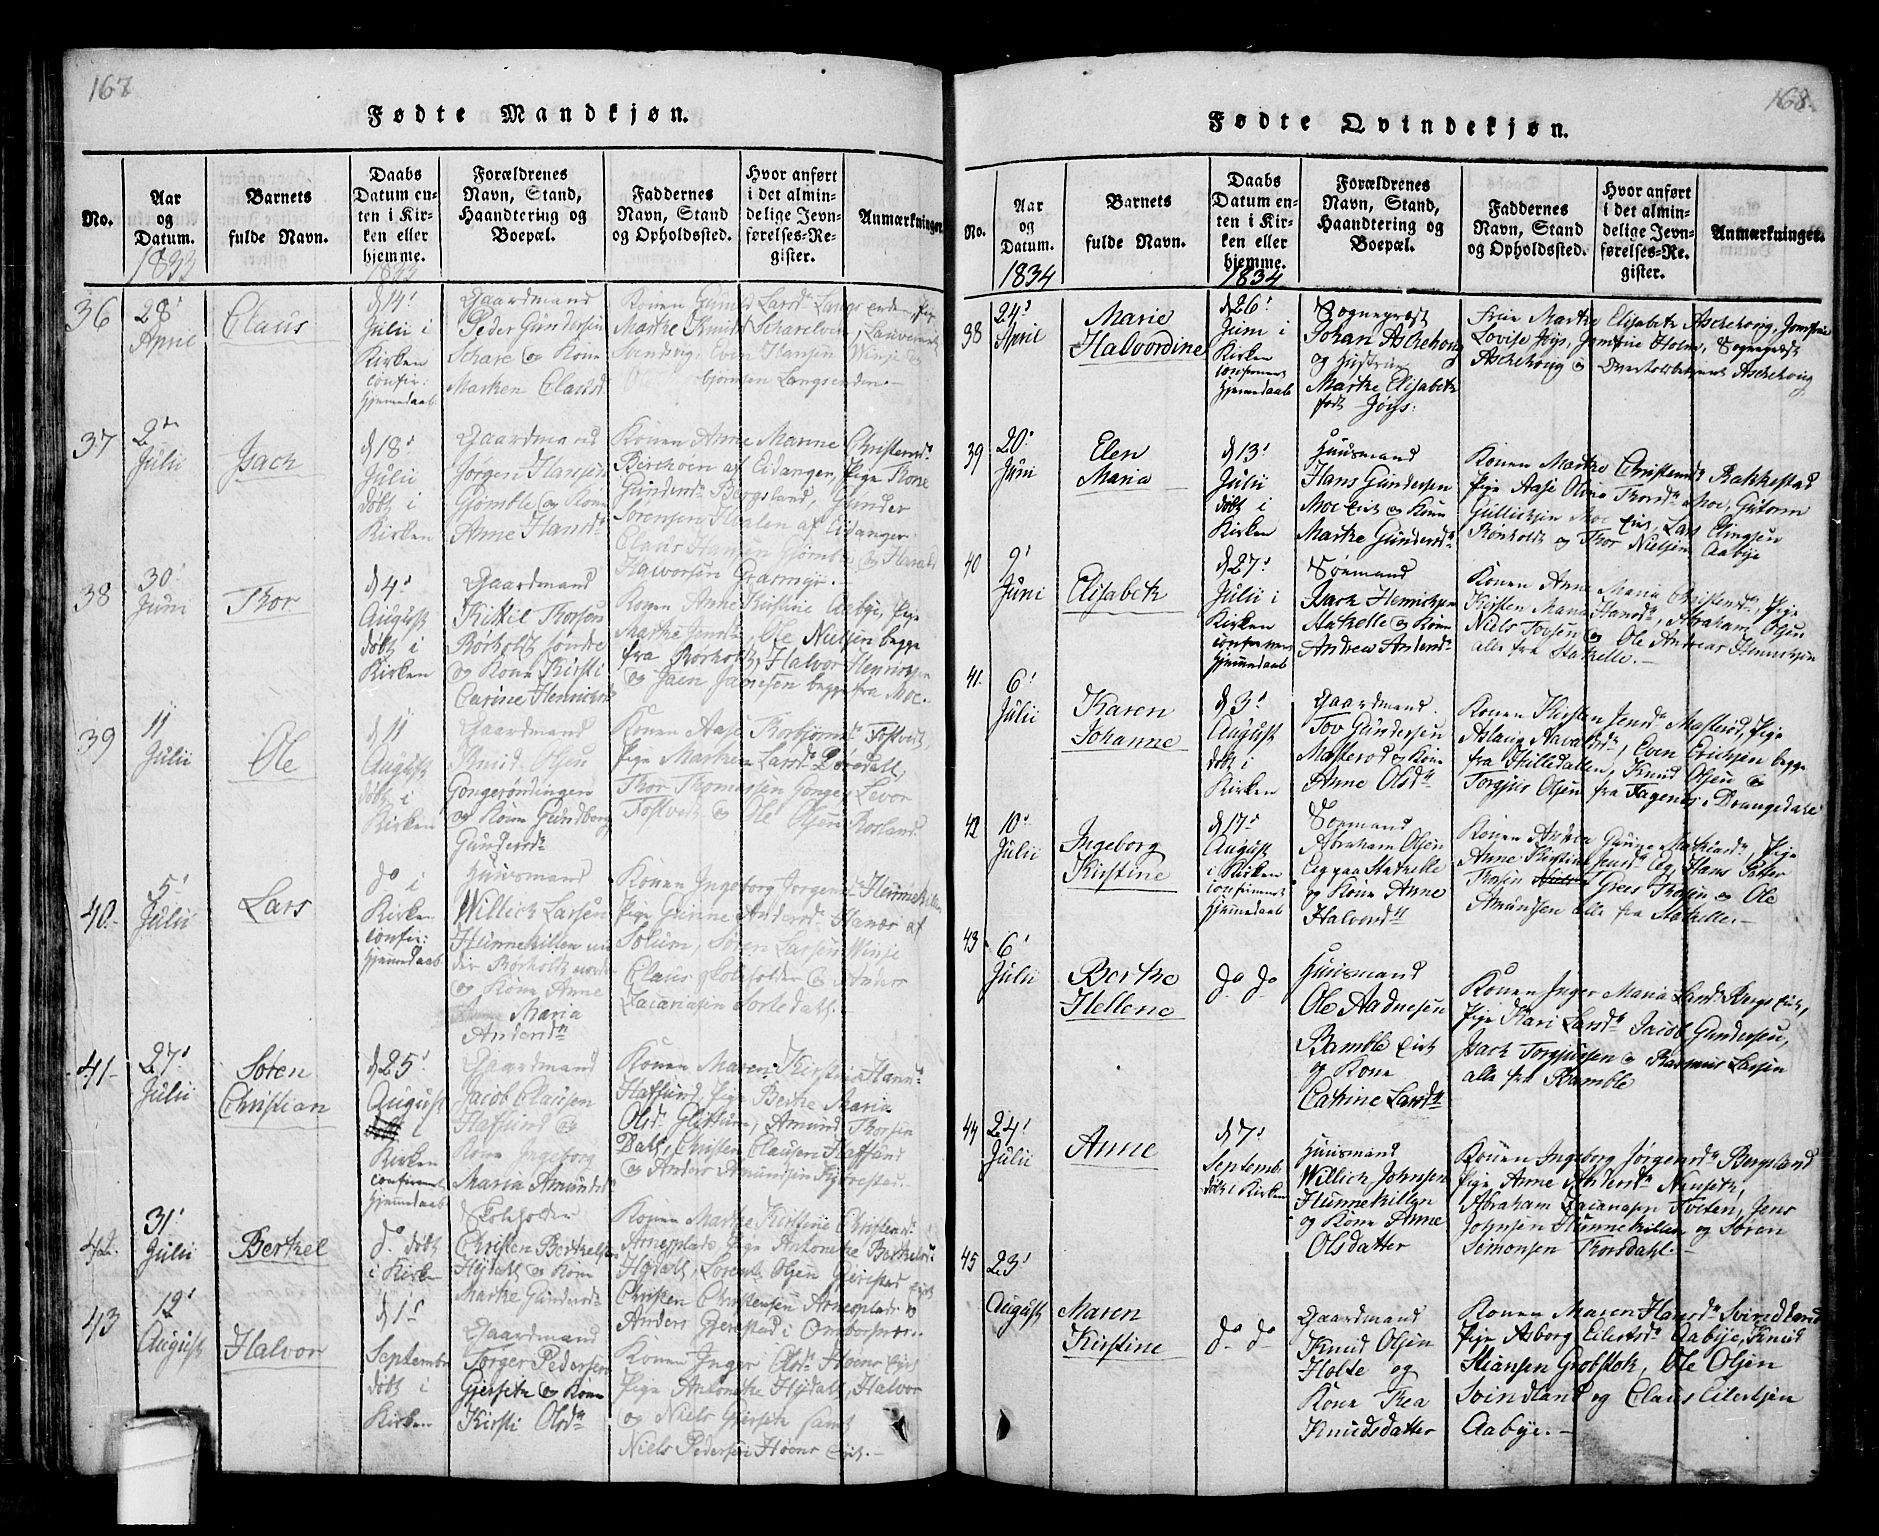 167
Fødte Mandkjøn.
No.
Aar og Datum.
1833
Barnets fulde Navn.
Daabs Datum enten i Kirken eller hjemme.
1833
Forældrenes Navn, Stand, Haandtering og Boepæl.
Faddernes Navn, Stand og Opholdssted.
Hvor anført i det almindelige Jevnførelses-Register.
Anmærkninger.
36
28' April
Claus
d 14' Julii i Kirken confir: hjemmedaab
Gaardmand
Peder Gundersen
og Kone
Maren Clausd
37
2den Julii
Isach
d 18' Julii døbt i Kirken
Gaardmand
Jørgen Hansen
Gjømble og Kone
Anne Hansdr
Konen Anne Marine Christensdr
af Eidanger, Pige Tone
Gundersdr Bergsland, Gunder
Sørensen Hvalen af Eidanger
Claus Hansen Gjømble og Harald
Halvorsen Grasmyr.
38
30' Juni
Thor
d 4' August døbt i Kirken
Gaardmand
Kittil Thorsen
Rørholt søndre
og Kone Kirsti
Carine Henrichsd
Konen Anne Kirstine Aabye, Pige
Marthe Jensdr, Ole Nielsen begge
fra Rørholt, Halvor Hennigsen
og Jaen Jansen begge fra Moe.
39
11 Julii
Ole
d 11 August døbt i Kirken
Gaardmand
Knud Olsen
Gongerødningen
og Kone Gundborg
Gundersdr
Konen Aase Thorbjørnsdr Tostvedt,
Pige Maren Larsdr Dørdall,
Thor Thomassen Gonge, Levor
Tostvedt og Ole Olsen Rosland.
40
5' Julii
Lars
do i Kirken confir: hjemmedaab
Huusmand
Willich Larsen
Hunnekillen un
der Rørholt nordre
og Kone Anne
Maria
Andersdr
Konen Ingeborg Jørgensdr Hunnekillen
Pige Gurine Andersdr Hanær af
Solum, Søren Larsen Winje
Claus skoleholder og Anders
Zacariasen Sortedall.
41
27' Julii
Søren Christian
d 25' August i Kirken confirmert hjemmedaab
Gaardmand
Jacob Clausen
Hafsund og
Kone Ingeborg
Maria Amundsdr
Konen Maren Kirstine Hansdr
Hafsund, Pige Berthe Maria
Olsdr Glittum, Amund Thorsen
Dahl, Christen Clausen Hafsund
og Anders Amundsen
42
31' Julii
Berthel
do døbt i Kirken
Skoleholder
Christen Berthelsen
Hydall og Kone
Marthe Gundersdr
Konen Marthe Kirstine Christensdr
Arneplads, Pige Antonethe Berthelsdr
Hydall, Lorents Olsen Gjerestad
Christen Christensen Arneplads og
Anders Gjerestad i
43
12' August
Halvor
d 1' September døbt i Kirken
Gaardmand
Torger Pedersen
Gjerseth og Kone
Kirsti Olsdr
Konen Inger Olsdr Høen
Pige Antonethe Hydall, Halvor
og Niels Gjerseth samt
Niels Pedersen Høen
168.
Fødte Qvindekjøn.
No.
Aar og Datum.
1834
Barnets fulde Navn.
Daabs Datum enten i Kirken eller hjemme.
1834
Forældrenes Navn, Stand, Haandtering og Boepæl.
Faddernes Navn, Stand og Opholdssted.
Hvor anført i det almindelige Jevnførelses-Register.
Anmærkninger.
38
24' April
Marie Halvordine
d 26' Juni i Kirken confirmert hjemmedaab
Sogneprest
Johan Aschehoug
og Hustrue
Marthe Elisabeth
født Joys:
Frue Marthe Elisabeth Aschehoug, Jomfrue
Lovise Joys, Jomfrue Holm, Sogneprest
Aschehoug og Aschehoug
39
20' Juni
Elen Maria
d 13' Julii døbt i Kirken
Huusmand
Hans Gundersen
Moe Eiet og Kone
Marthe Gundersdr
Konen Marthe Christensdr Bakkestad
Pige Aase Olvine Thorsdr Moe, Gutorm
Gullichsen Moe Eiet, Lars Elingsen
Rønholt og Thor Nielsen Aabye
40
9' Juni
Elisabeth
d 27' Julii i Kirken confirmert hjemmedaab
Sømand
Isach Henrichsen
Stathelle og Kone
Andrea Andersdr
Konen Anne Maria Christensdr, Pige
Kirsten Maria Hansdr, Abraham Olsen
Niels Tovsen og Ole Andreas Henrichsen
alle fra Stathelle.
41.
6' Julii
Karen Johanne
d 3' August døbt i Kirken
Gaardmand
Tov Gundersen
Masterød og Kone
Anne Olsdr
Konen Kirsten Jensdr Masterød, Pige
Aslaug Aavaldsdr, Even Erichsen begge
fra Hilledallen, Knud Olsen og
Torgius Olsen fra Fagernes i Drangedahl
42
10' Julii
Ingeborg Kirstine
d 17' August i Kirken confirmert hjemmedaab
Sømand
Abraham Olsen
Eeg paa Stathelle
og Kone Anne
Halvorsdr
Konen Andrea Gurine Mathiasdr, Pige
Anne Kirstine Eeg, Hans Petter
Thosen Grees Thosen og Ole
Amundsen alle fra Stathelle.
43
6' Julii
Berthe Hellene
do do
Huusmand
Ole Aadnesen
Bamble Eiet
og Kone
Catrine Larsdr
Konen Inger Maria Larsdr Bergs Eiet,
Pige Kari Larsdr Jacob Gundersen,
Isach Torgiussen og Rasmus Larsen
alle fra Bamble
44
24' Julii
Anne
d 7' September døbt i Kirken
Huusmand
Willich Johnsen
Hunnekillen
og Kone Anne
Olsdatter
Konen Ingeborg Jørgensdr Bergsland
Pige Anne Andersdr Nenseth,
Abraham Zacariasen Tvedten, Jens
Johnsen Hunnekillen og Søren
Simonsen Thorsdahl.
45
23' August
Maren Kirstine
do do
Gaardmand
Knud Olsen
Holte og
Kone Thea
Knudsdatter
Konen Maren Hansdr Svindland
Pige Asborg Eilertsdr Aabye, Knud
Stiansen Grobstok, Ole Olsen
Svindland og Claus Eilertsen
Aabye.